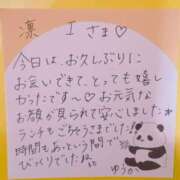 凛 Iさま♡
今日は、お久しぶりに
お会いできて、とっても嬉し
かったです〜♡お元気な
お顔が見られて安心しました。
ランチもごちそうさまでした!
時間もあっという間で
びっくりでしたね。
ゆうか